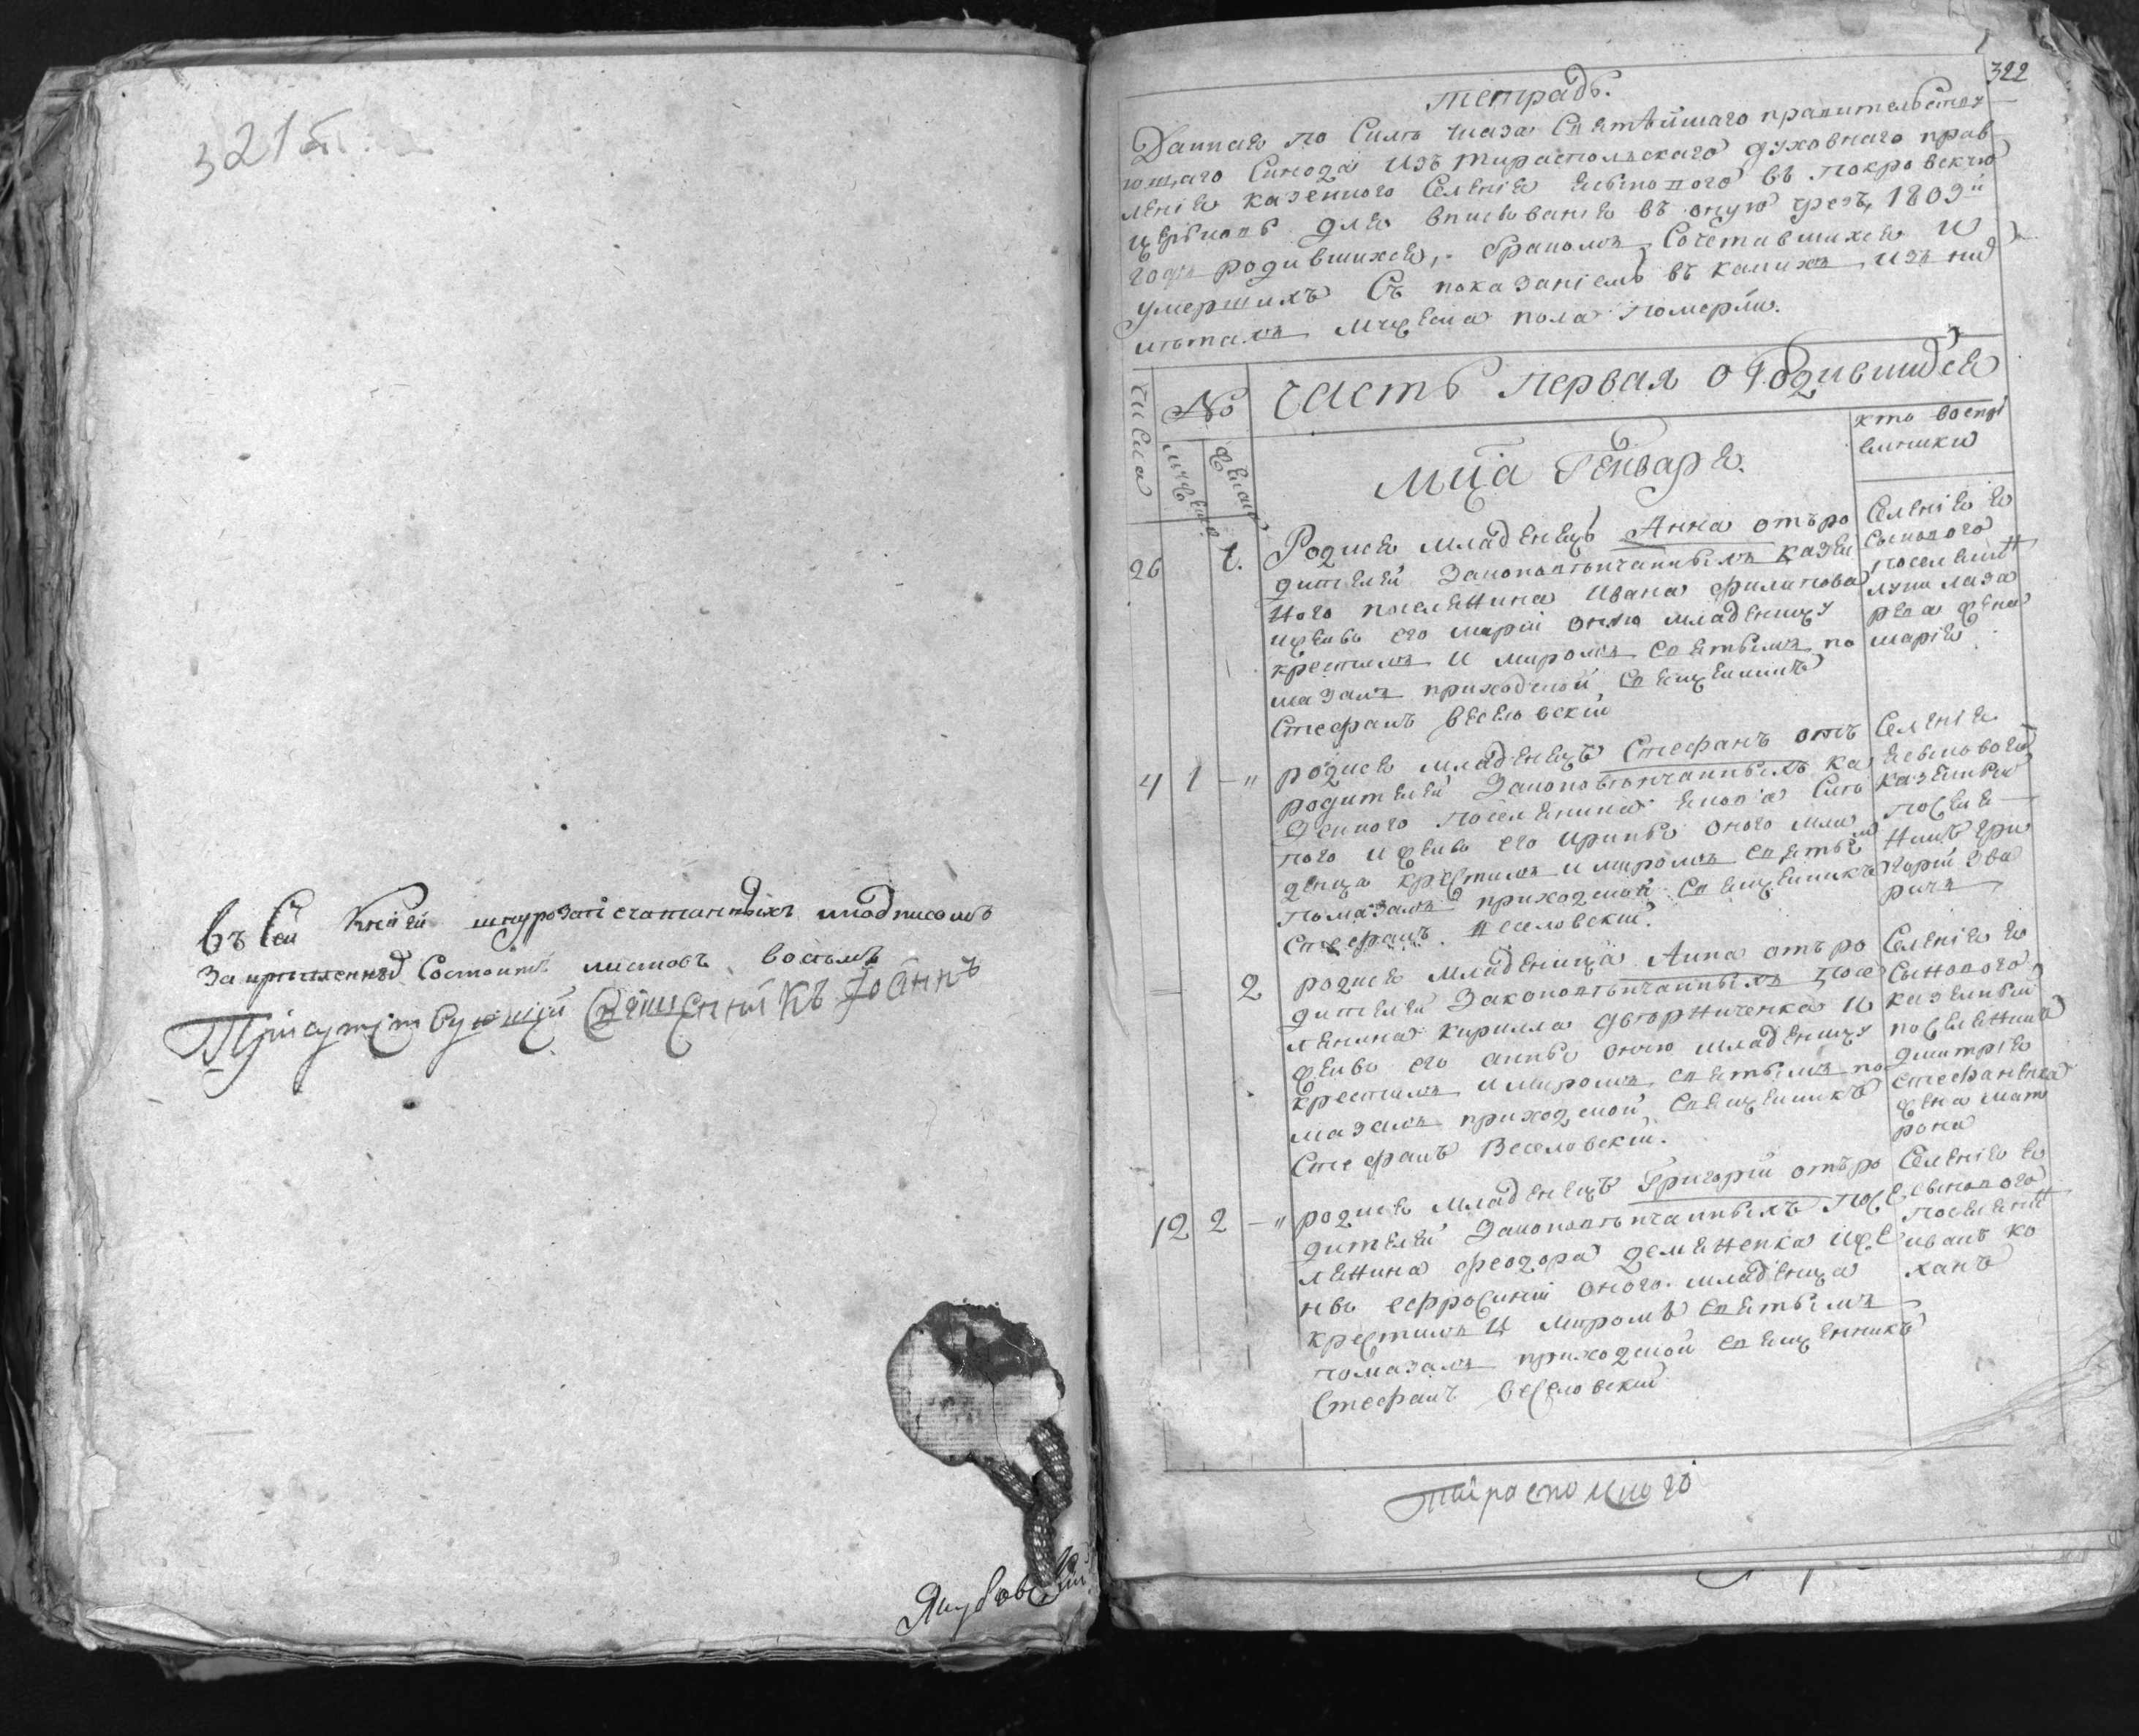 321 об.
въ сей книги шнурозапечатанныхъ и подписомъ
закрепленныхъ состоитъ листовъ восьмъ
Присутствующій священникъ Іоаннъ
Якубовскій
322
тетрадь.
Данная по силѣ указа святѣйшаго правительству
ющаго синода изъ тираспольскаго духовнаго прав
ленія казенного селенія въ покровскую
церьковь для вписованія въ оную чрезъ 1809й
годъ родившихся, бракомъ сочетавшихся и
умершихъ съ показаніемъ въ какихъ изъ них
лѣтахъ мужеска пола померли.
числа
№
часть первая о родившихся
мужеска
женска
мца Генваря.
кто воспрі
емники
26
1.
Родися младенецъ Анна отъ ро
дителей законовѣнчанныхъ казен
ного поселенина Ивана филипова
и жены его маріи оную младеницу
крестилъ и миромъ святымъ по
мазалъ приходской священникъ
Стефанъ веселовскій
селенія
поселенин
лазар
жена
марія
4 1 - "
родися младенецъ Стефанъ отъ
родителей законовѣнчанныхъ ка
зенного поселенина
и жены его ирины оного мла
денца крестилъ и миромъ святым
помазалъ приходской священникъ
Стефанъ веселовскій.
селенія
казенный
поселе
нинъ гри
горій
2
родися младеница Анна отъ ро
дителей законовѣнчанныхъ посе
ленина кирилла дверниченка и
жены его анны оную младеницу
крестилъ и миромъ святымъ по
мазалъ приходской священникъ
Стефанъ Веселовскій.
селенія
казенный
поселенина
димитрія
стефаненка
жена мат
рона
12 2 - "
родися младенецъ Григорій отъ ро
дителей законовѣнчанныхъ посе
ленина феодора деменченка и же
ны ефросиніи оного младенца
крестилъ и миромъ святымъ
помазалъ приходской священникъ
Стефанъ веселовскій
селенія
поселенин
иванъ ко
ханъ
тираспольского